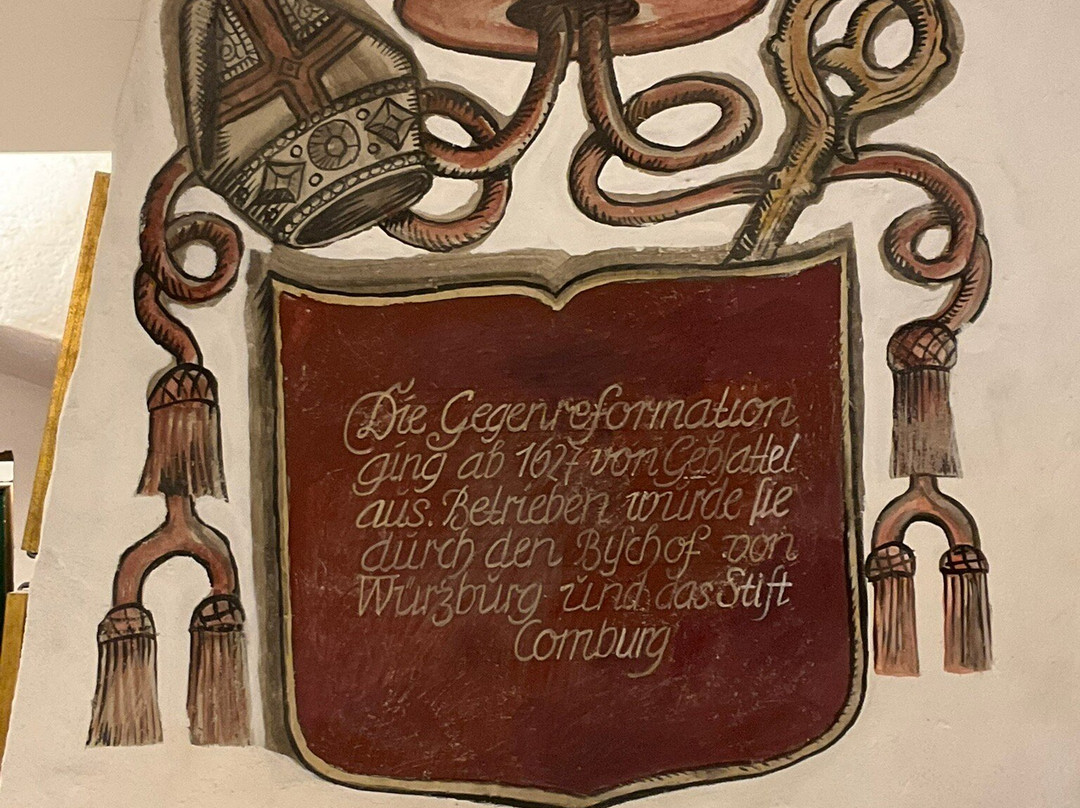 Die Gegenreformation
ging ab 1627 von Gebſattel
aus. Betrieben wurde ſie
durch den Biſchof von
Würzburg und das Stift
Comburg